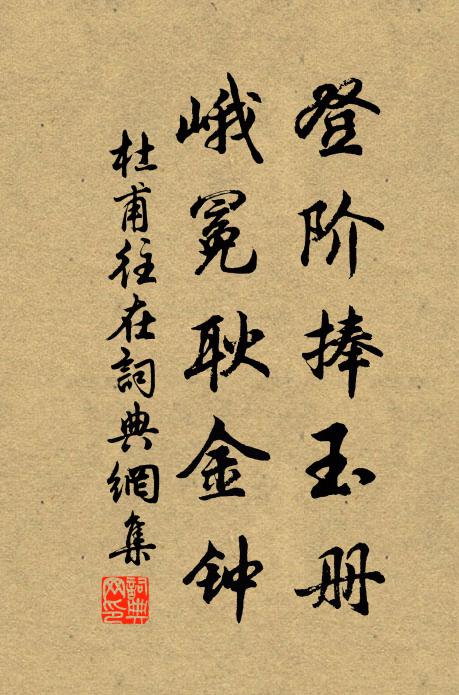 登阶捧玉册
峨冕耿金钟
杜甫往在詞典網集
詞典网印